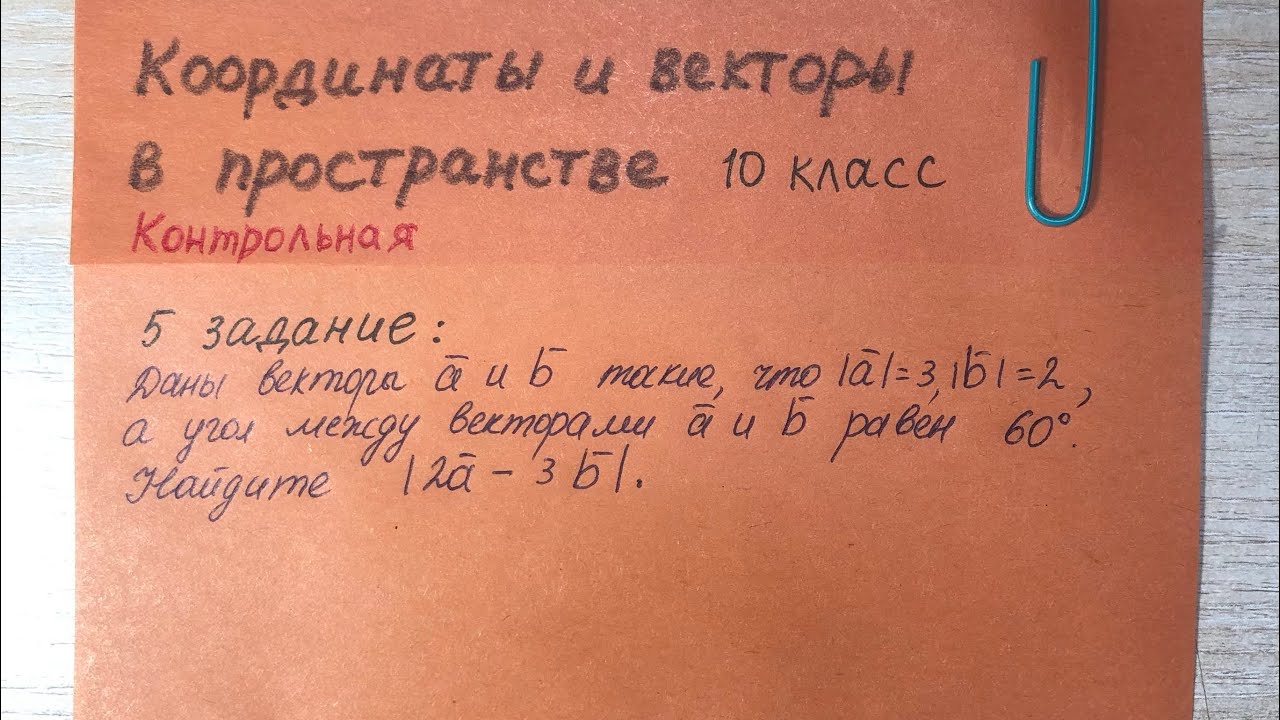 Координаты и векторы
в пространстве 10 класс
Контрольная
5 задание:
Даны векторы a̅ и b̅ такие, что |a̅|=3, |b̅|=2,
а угол между векторами a̅ и b̅ равен 60°.
Найдите |2a̅ - 3b̅|.